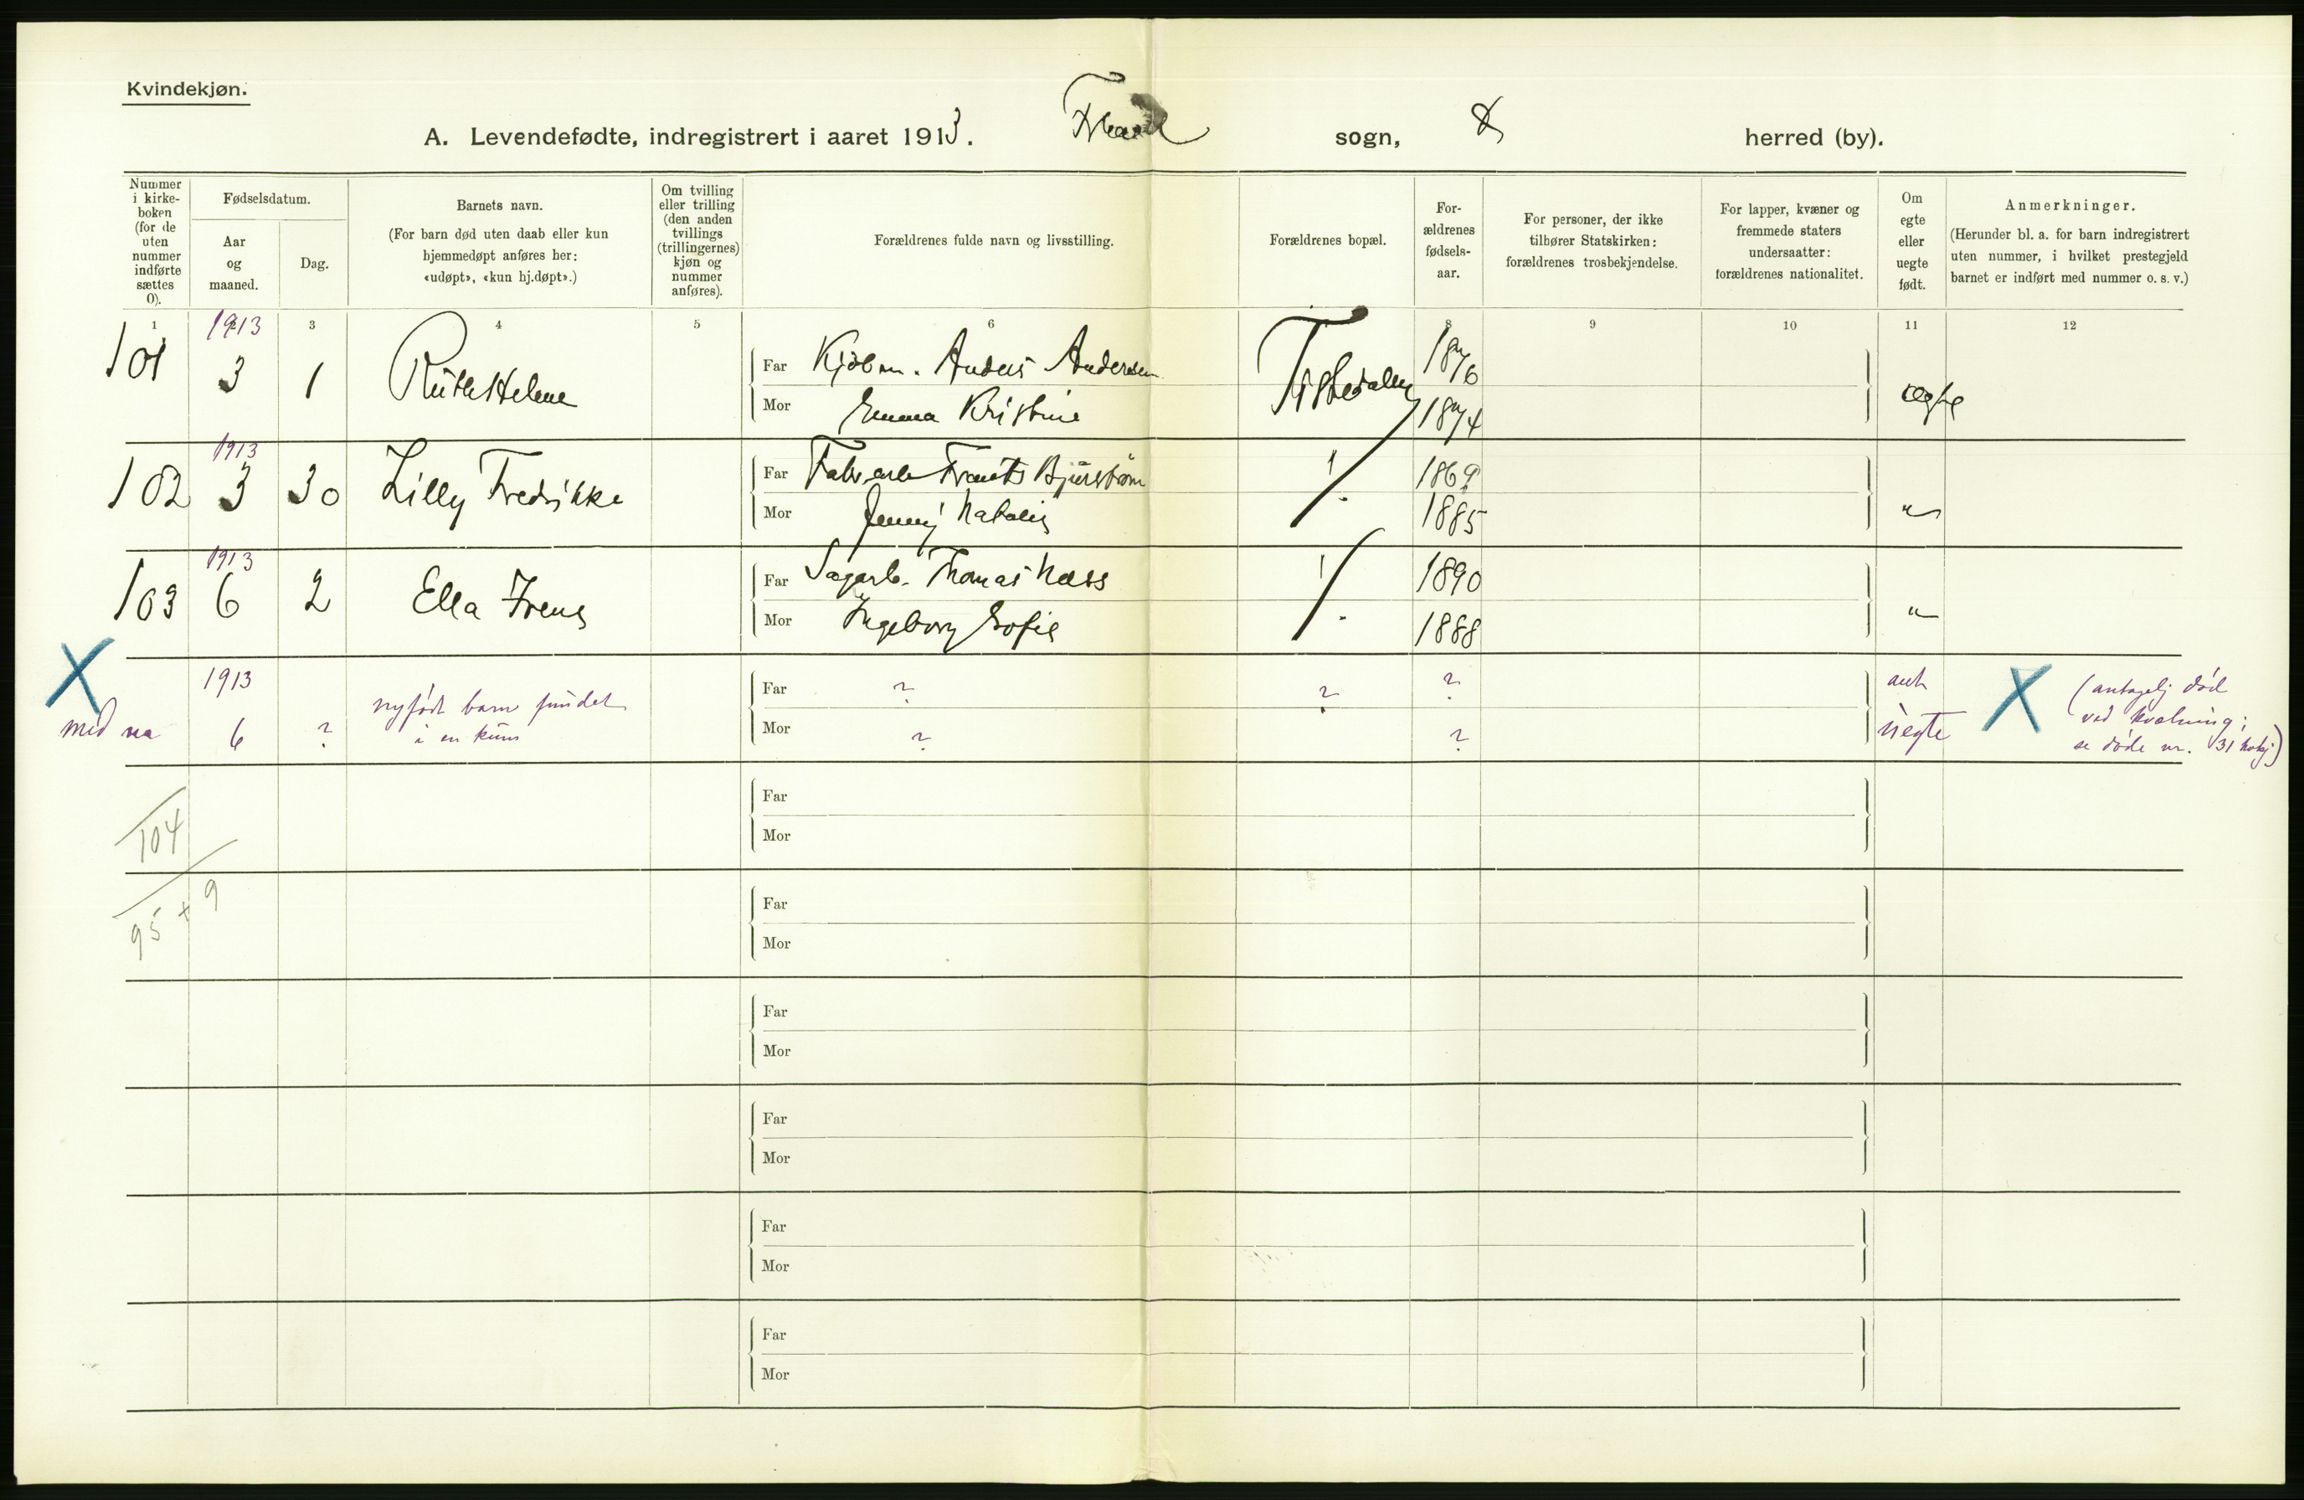 Kvindekjøn.
A. Levendefødte, indregistrert i aaret 1913. sogn, herred (by).
Nummer i kirkeboken (for de uten nummer indførte sættes 0).
Fødselsdatum.
Aar og maaned.
Dag.
Barnets navn.
(For barn død uten daab eller kun hjemmedøpt anføres her: «udøpt», «kun hj.døpt».)
Om tvilling eller trilling (den anden tvillings (trillingernes) kjøn og nummer anføres).
Forældrenes fulde navn og livsstilling.
Forældrenes bopæl.
For-ældrenes fødsels-aar.
For personer, der ikke tilhører Statskirken: forældrenes trosbekjendelse.
For lapper, kvæner og fremmede staters undersaatter: forældrenes nationalitet.
Om egte eller uegte født.
Anmerkninger.
(Herunder bl. a. for barn indregistrert uten nummer, i hvilket prestegjeld barnet er indført med nummer o. s. v.)
1 3 4 5 6 8 9 10 11 12
101 1913 3 1 Ruth Helene Far Kjøbm. Anders Andersen Tistedalen 1876 ægte
Mor Emma Kristine 1874
102 1913 3 30 Lilly Fredrikke Far Fabrarb. Frants Bjurstrøm 1869 "
Mor Jenny Natalie 1885
103 1913 6 2 Ella Irene Far Sagarb. Thomas Næss 1890 "
Mor Ingeborg Sofie 1888
X 1913 6 ? nyfødt barn fundet Far ? ? ? ant X (antagelig død
i en kum Mor ? ? uegte ved kvælning;
se døde nr. 31
104
95 + 9
Far
Mor
Far
Mor
Far
Mor
Far
Mor
Far
Mor
Far
Mor